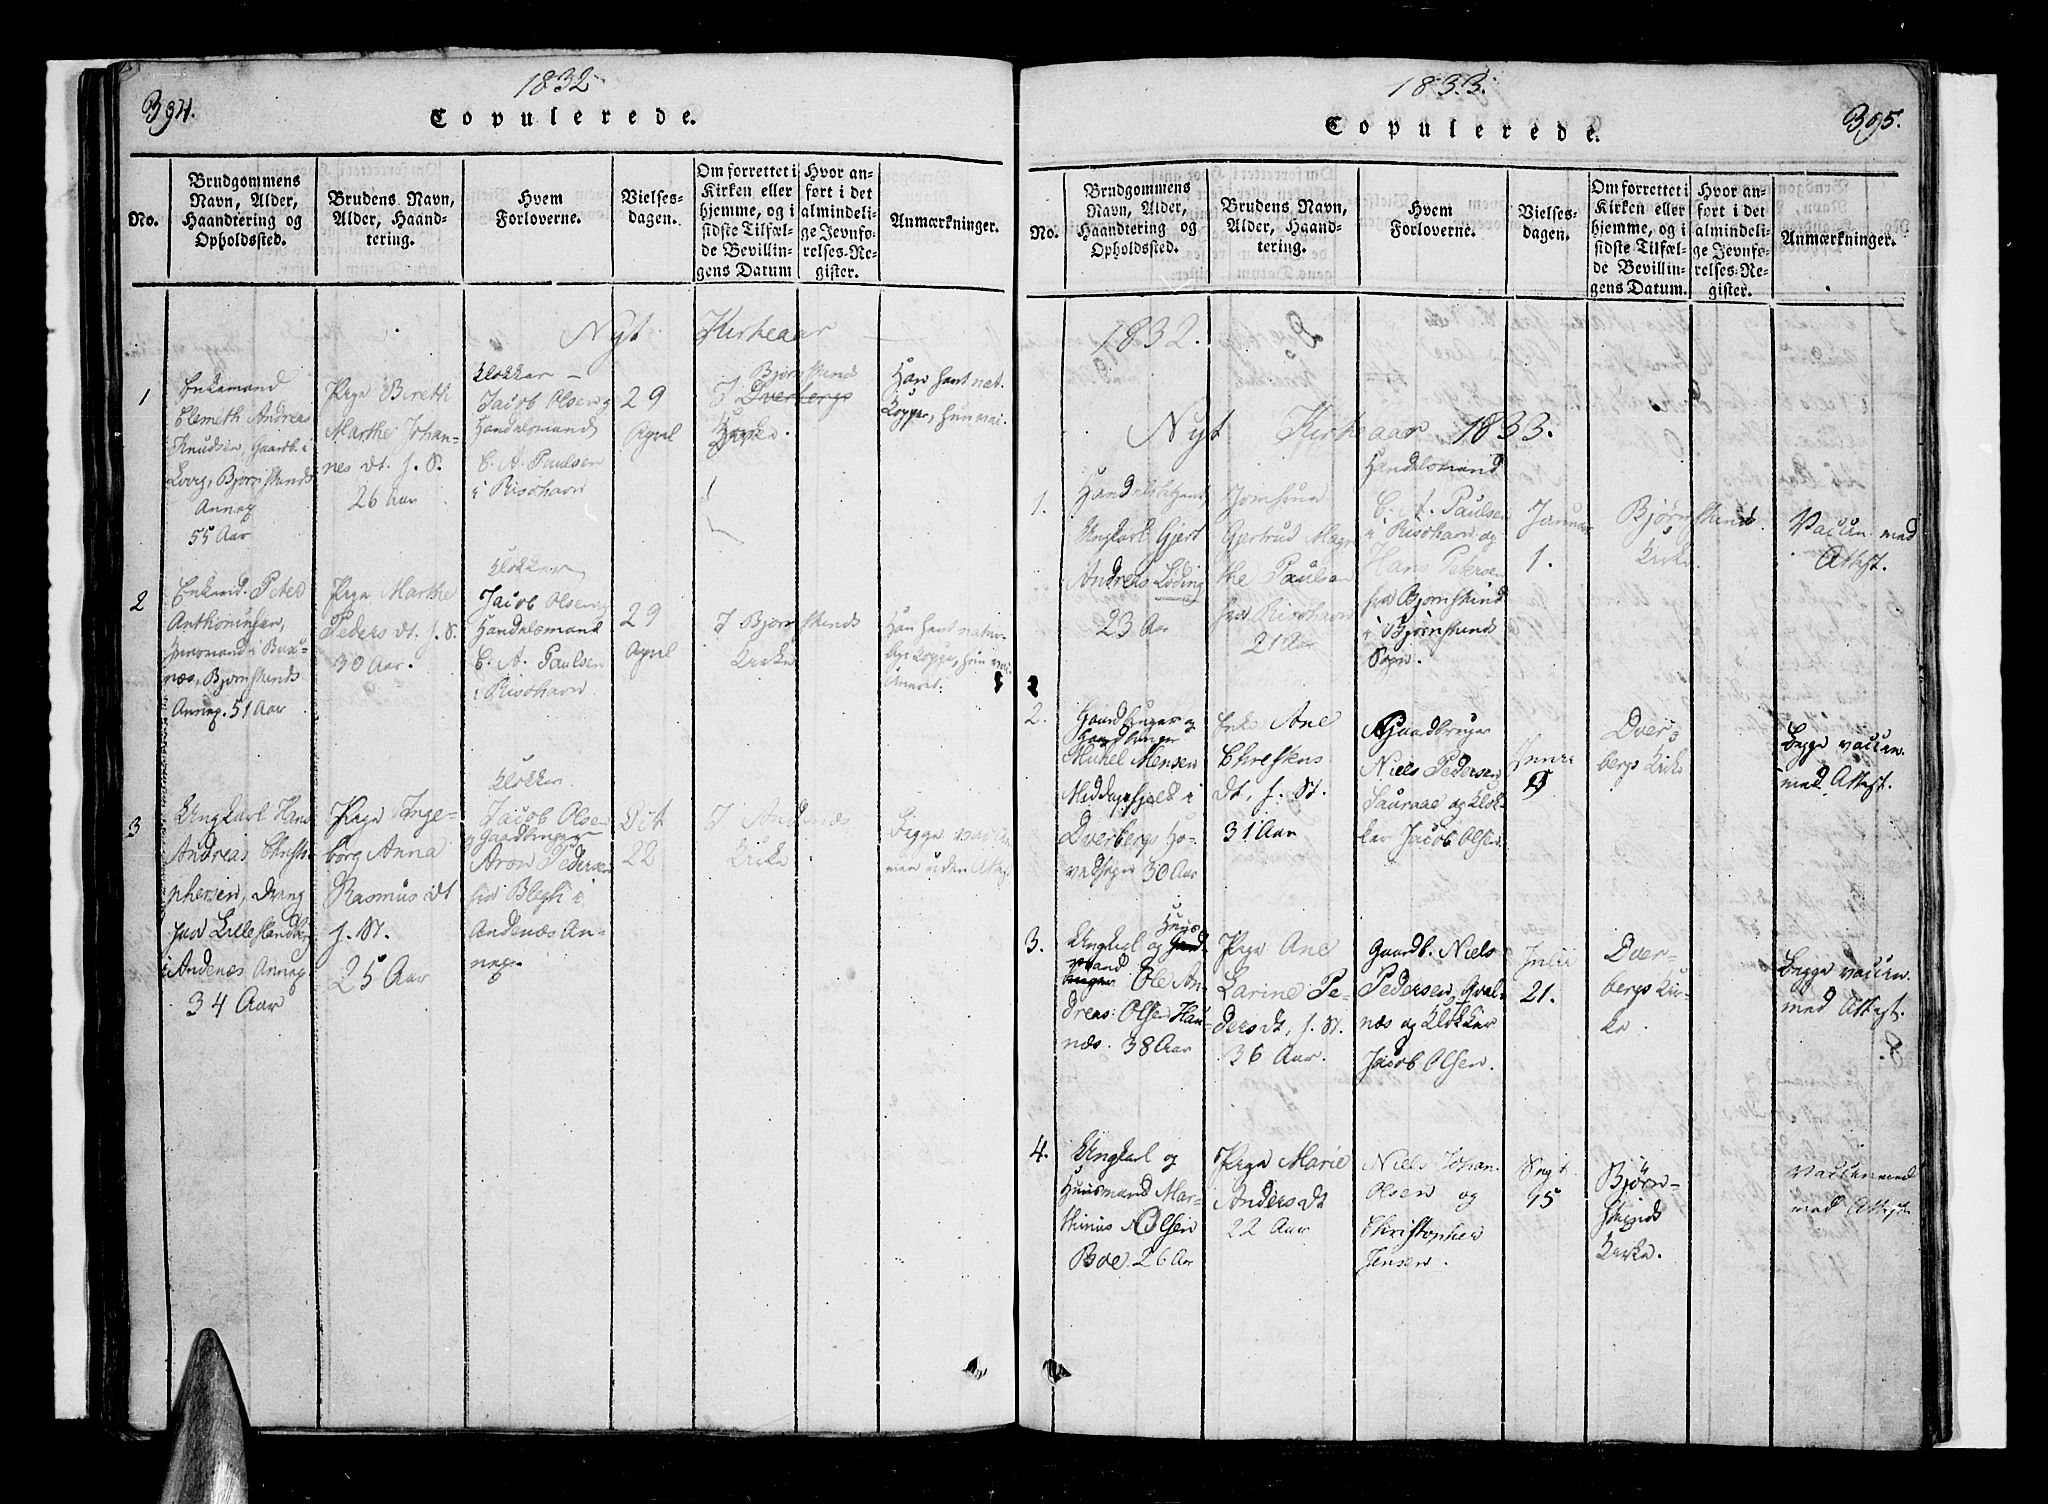 394.
1832
Copulerede.
No.
Brudgommens
Navn, Alder,
Haandtering og
Opholdssted.
Brudens Navn,
Alder, Haand-
tering.
Hvem
Forloverne.
Vielses-
dagen.
Om forrettet i
Kirken eller
hjemme, og i
sidste Tilfæl-
de Bevillin-
gens Datum
Hvor an-
ført i det
almindeli-
ge Jevnfø-
relses-Re-
gister.
Anmærkninger.
Nyt Kirkeaar
1
Enkemand
Clemeth Andreas
Knudsen, Gaardb. i
Bjørnskinds
Annex
55 Aar
Pige Bereth
Marthe Johan-
nes dt. f. S.
26 Aar
Klokker
Jacob Olsen og
Handelsmand
C. A. Paulsen
i Risøhavn
29
April
Bjørnskinds
I Dverbergs
Kirke.
Han havt nat.
Kopper, hun vac.
2
Enkemd. Peter
Anthonissen,
Huusmand i Bux-
næs, Bjørnskinds
Annex. 51 Aar
Pige Marthe
Peders dt. f. S.
30 Aar.
Klokker
Jacob Olsen og
Handelsmand
C. A. Paulsen
i Risøhavn
29
April
I Bjørnskinds
Kirke
Han havt natur-
lige Kopper, hun vac-
cineret.
3
Ungkarl Hans
Andreas Christo-
phersen, Dreng
fra Lille
i Andenæs Annex
34 Aar
Pige Inge-
borg Anna
Rasmus dt
f. St.
25 Aar
Klokker
Jacob Olsen
og Gaardbruger
Aron Pedersen
fra Bleg i
Andenæs An-
nex.
Oct
22
I Andenæs
Kirke
Begge
uden Attest
395.
1833.
Copulerede.
No.
Brudgommens
Navn, Alder,
Haandtering og
Opholdssted.
Brudens Navn,
Alder, Haand-
tering.
Hvem
Forloverne.
Vielses-
dagen.
Om forrettet i
Kirken eller
hjemme, og i
sidste Tilfæl-
de Bevillin-
gens Datum.
Hvor an-
ført i det
almindeli-
ge Jevnfø-
relses-Re-
gister.
Anmærkninger.
1832.
Nyt Kirkeaar 1833.
1.
Ungkarl Gjert
Andreas Loding
23 Aar
Jomfrue
Gjertrud Magre-
the Paulsen
fra Risøhavn
21 Aar
Handelsmand
C. A. Paulsen
i Risøhavn og
Hans Petersen
fra Bjørnskind
i Bjørnskinds
Sogn.
Januar
1.
Bjørnskinds
Kirke
Vaccin. med
Attest.
2.
Gaardbruger og
Michel Mensen
Middagsfjeld i
Dverbergs Ho-
vedsogn 30 Aar
Enke Ane
Christens
dt, f. St.
31 Aar
Gaardbruger
Niels Pedersen
Sauraae og Klok-
ker Jacob Olsen
Dver-
bergs Kirke
Begge vaccin.
med Attest.
3.
Ungkarl og Huus
mand Ole An-
dreas Olsen Hau-
næs. 38 Aar
Pige Ane
Carine Pe-
ders dt, f. St.
36 Aar.
Gaardb. Niels
Pedersen, Qval-
næs og Klokker
Jacob Olsen.
Julii
21.
Dver-
bergs Kir-
ke
Begge vaccin.
med Attest.
4.
Ungkarl og
Huusmand Mar-
thinus Olsen
Boe 26 Aar
Pige Marie
Anders dt
22 Aar
Niels Johan
Olsen og
Christopher
Jensen.
Sept
15
Bjørn-
skinds
Kirke.
Vaccinered
med Attest